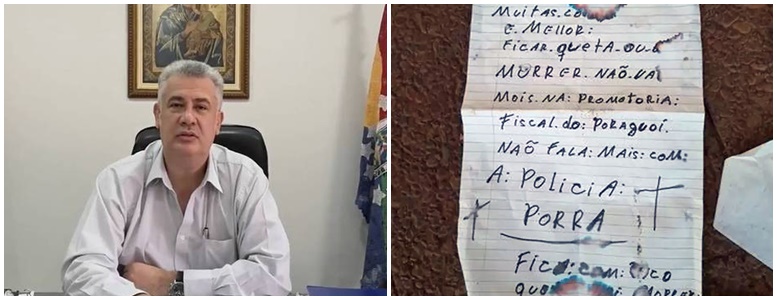 MUiTAS.CO
E. MELLOR:
FiCAR.QUETA.OU.
MORRER.NAÕ.VA
MAiS.NA: PROMOTORiA:
FiSCAL.do: PORAGUAi.
NAÕ FALA: MAiS: COM:
A: POLiCiA:
PORRA
FiCA: COM: